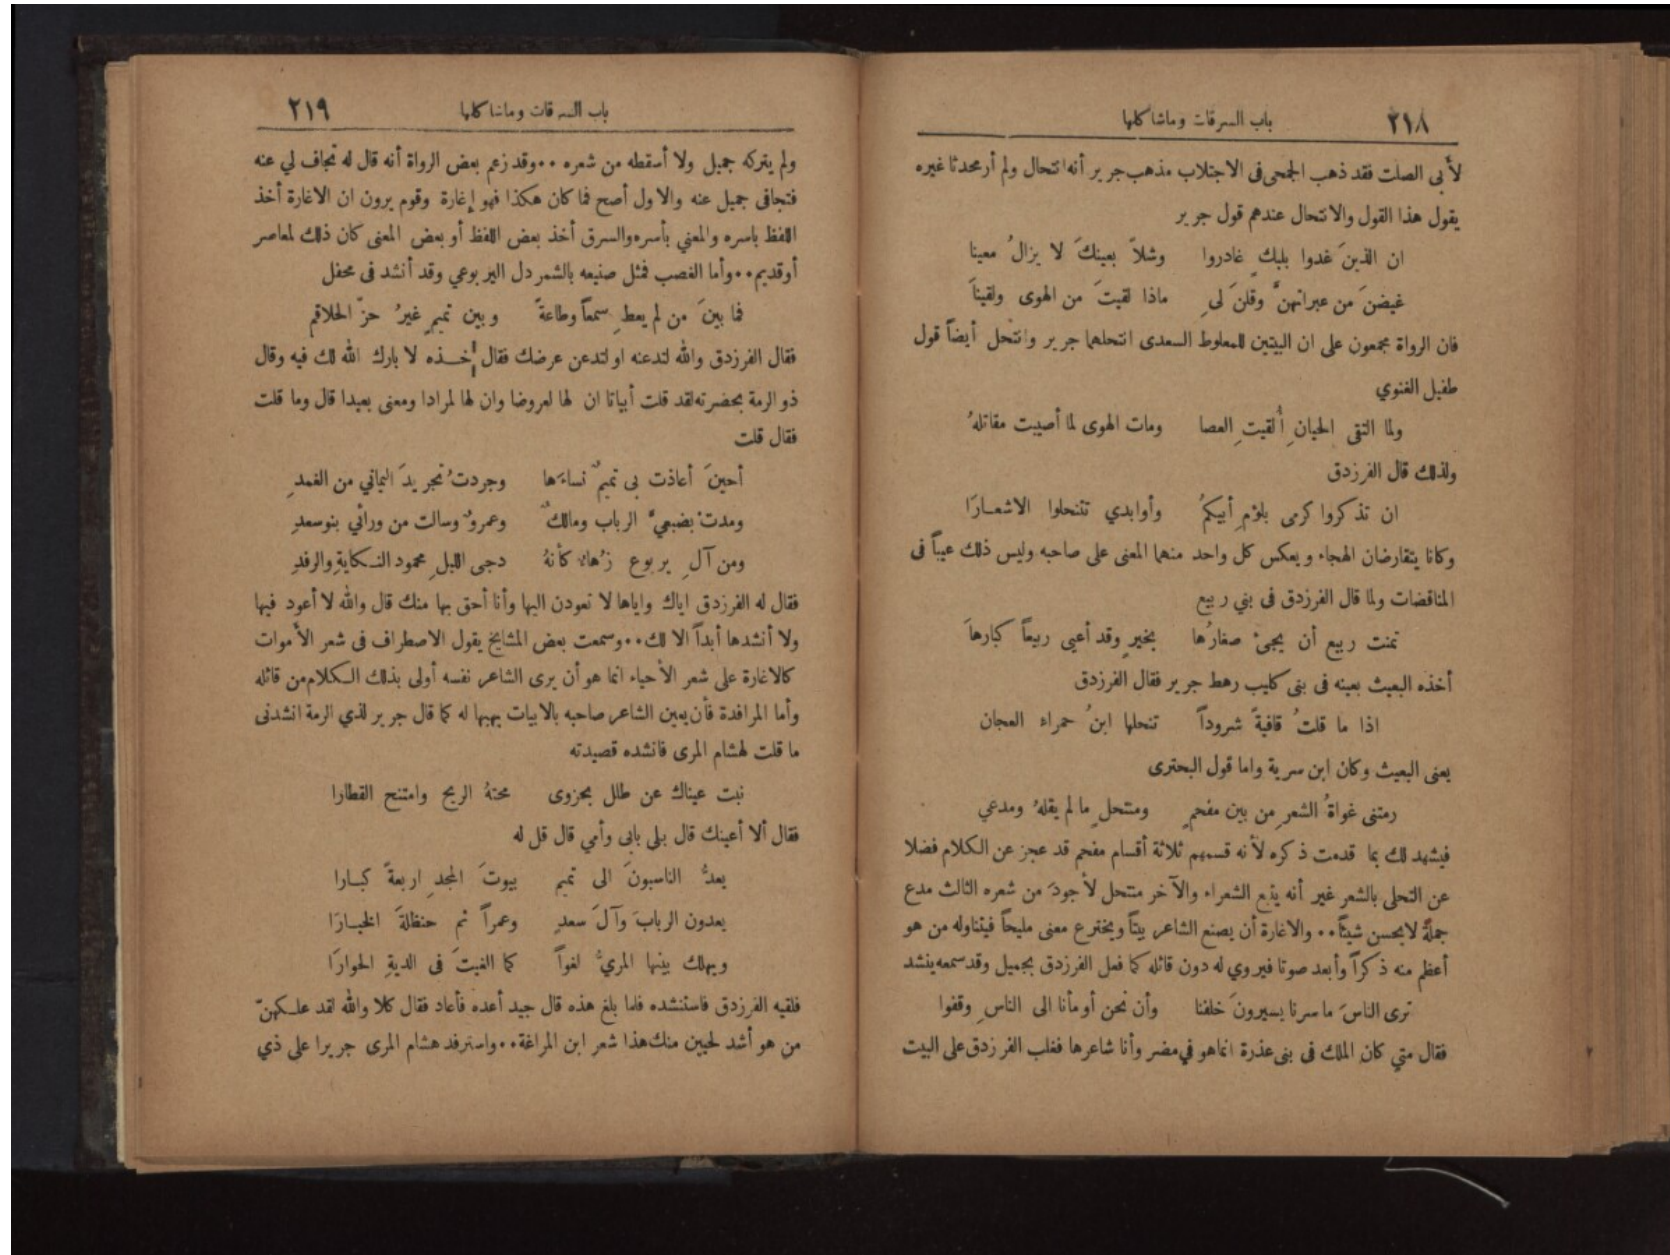 باب السرقات وماشاكلها ٢١٨
لأبى الصلت فقد ذهب الجمحى فى الاجتلاب مذهب جرير أنه انتحال ولم أرمحدثا غيره
يقول هذا القول والانتحال عندهم قول جرير
ان الذينَ غدوا بلبكٍ غادروا وشلاً بعينكَ لا يزالُ معينا
غيضنَ من عبراتهنَّ وقلنَ لىِ ماذا لقيتَ من الهوى ولقيناَ
فان الرواة مجمعون على ان البيتين للمعلوط السعدى انتحلهما جرير وانتحل أيضاً قول
طفيل الغنوي
ولما التقى الحيانِ أُلقيتِ العصا ومات الهوى لما أصيبت مقاتلهُ
ولذلك قال الفرزدق
ان تذكروا كرمى بلؤمِ أبيكمُ وأوابدي تتنحلوا الاشعارَا
وكانا يتقارضان الهجاء ويعكس كل واحد منهما المعنى على صاحبه وليس ذلك عيباً فى
المناقضات ولما قال الفرزدق فى بني ربيع
تمنت ربيع أن يجئَ صغارُها بخيرٍ وقد أعيى ربيعاً كبارهاَ
أخذه البعيث بعينه فى بنى كليب رهط جرير فقال الفرزدق
اذا ما قلتُ قافيةً شروداً تنحلها ابنُ حمراء العجان
يعنى البعيث وكان ابن سرية واما قول البحترى
رمتنى غواةُ الشعرِ من بين مفحمٍ ومنتحلٍ مالم يقلهُ ومدعي
فيشهد لك بما قدمت ذكره لأنه قسمهم ثلاثة أقسام مفحم قد عجز عن الكلام فضلا
عن التحلى بالشعر غير أنه يتبع الشعراء والآخر منتحل لأجودَ من شعره الثالث مدع
جملةً لايحسن شيئاً٠٠ والاغارة أن يصنع الشاعر بيتاً ويخترع معنى مليحاً فيتناوله من هو
أعظم منه ذكراً وأبعد صوتا فيروي له دون قائله كما فعل الفرزدق بجميل وقد سمعه ينشد
ترى الناسَ ماسرنا يسيرونَ خلفنا وأن نحن أومأنا الى الناسِ وقفوا
فقال متي كان الملك فى بنى عذرة انماهو في مضر وأنا شاعرها فغلب الفرزدق على البيت
باب السرقات وماشاكلها ٢١٩
ولم يتركه جميل ولا أسقطه من شعره ٠٠وقد زعم بعض الرواة أنه قال له تجاف لي عنه
فتجافى جميل عنه والاول أصح فما كان هكذا فهو إغارة وقوم يرون ان الاغارة أخذ
اللفظ باسره والمعني بأسره والسرق أخذ بعض اللفظ أو بعض المعنى كان ذلك لمعاصر
أوقديم٠٠وأما الغصب فمثل صنيعه بالشمردل اليربوعي وقد أنشد فى محفل
فما بينَ من لم يعطِ سمعاً وطاعةً وبين تميمٍ غيرُ حزّ الحلاقم
فقال الفرزدق والله لتدعنه اولتدعن عرضك فقال خذه لا بارك الله لك فيه وقال
ذو الرمة بحضرته لقد قلت أبياتا ان لها لعروضا وان لها لمرادا ومعنى بعيدا قال وما قلت
فقال قلت
أحينَ أعاذت بى تميمٌ نساءَها وجردتُ تجريدَ اليماني من الغمدِ
ومدتْ بضبعيَّ الرباب ومالكٌ وعمروٌ وسالت من ورائي بنوسعدِ
ومن آلِ يربوع زُهاءٌ كأنهُ دجى الليلِ محمود النكايةِ والرفدِ
فقال له الفرزدق اياك واياها لا تعودن اليها وأنا أحق بها منك قال والله لا أعود فيها
ولا أنشدها أبداً الا لك٠٠وسمعت بعض المشايخ يقول الاصطراف فى شعر الأموات
كالاغارة على شعر الأحياء انما هو أن يرى الشاعر نفسه أولى بذلك الكلام من قائله
وأما المرافدة فأن يعين الشاعر صاحبه بالابيات يهبها له كما قال جرير لذي الرمة انشدنى
ما قلت لهشام المرى فانشده قصيدته
نبت عيناك عن طلل بحزوى محتهُ الريح وامتنح القطارا
فقال ألا أعينك قال بلى بابى وأمي قال قل له
يعدُّ الناسبونَ الى تميم بيوتَ المجدِ اربعةً كبارا
يعدون الربابَ وآلَ سعدٍ وعمراً ثم حنظلةَ الخيارَا
ويهلك بينها المريُّ لغواً كما الغيتَ فى الديةِ الحوارَا
فلقيه الفرزدق فاستنشده فلما بلغ هذه قال جيد أعده فأعاد فقال كلا والله لقد علكهنّ
من هو أشد لحيين منك هذا شعر ابن المراغة٠٠واسترفد هشام المرى جريرا على ذي